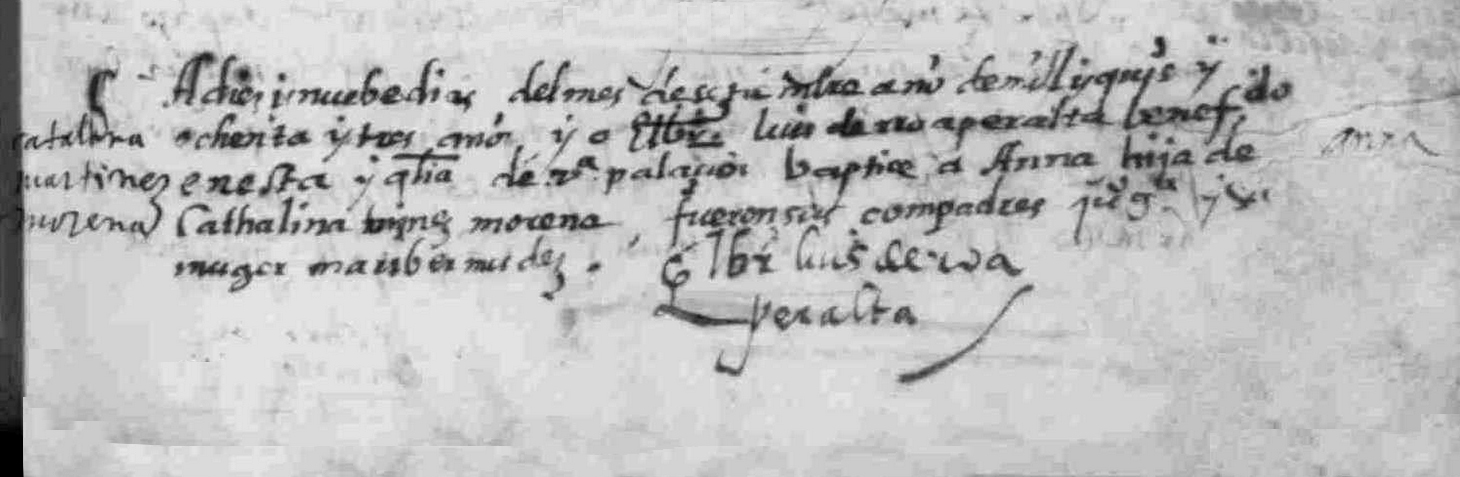 A diez i nuebe dias del mes de setiembre año de mill y quis y
ochenta y tres años yo El br luis de roa peralta benefdo
catalina
martinez
morena
en esta yglia de va palacios baptice a Anna hija de
anna
Cathalina mrnz morena fueron sus compadres y su
muger mari bermudez. El br luis de roa
peralta